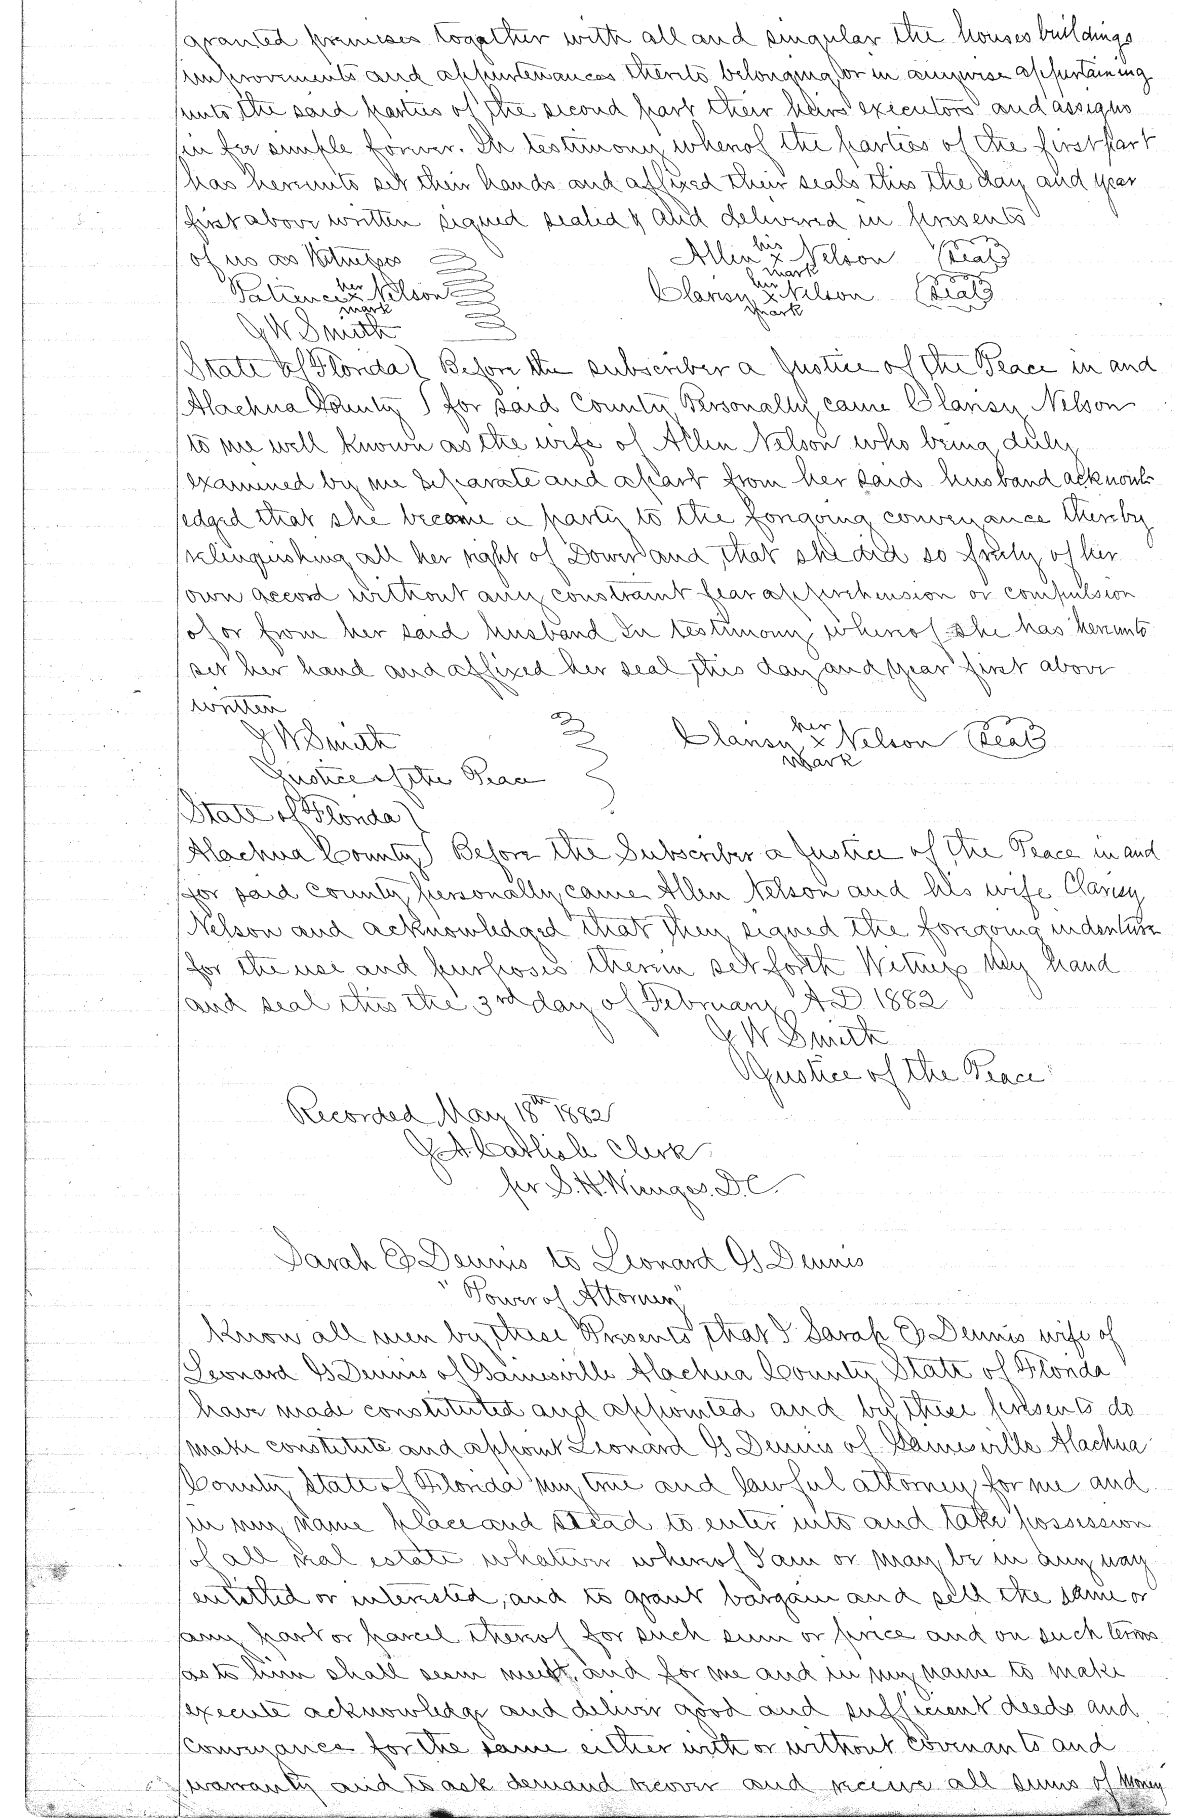 granted premises together with all and singular the houses buildings
improvements and appurtenances thereto belonging or in anywise appertaining
unto the said parties of the second part their heirs executors and assigns
in fee simple forever. In testimony whereof the parties of the first part
has hereunto set their hands and affixed their seals this the day and year
first above written signed sealed & and delivered in presents
of us as Witness
Allen his x mark Nelson (Seal)
Patience her x mark Nelson
Clarisy her x mark Nelson (Seal)
J W Smith
State of Florida } Before the subscriber a Justice of the Peace in and
Alachua County } for said County Personally came Clarisy Nelson
to me well known as the wife of Allen Nelson who being duly
examined by me separate and apart from her said husband acknowl-
edged that she become a party to the forgoing conveyance thereby
relinquishing all her right of Dower and that she did so freely of her
own accord without any constraint fear apprehension or compulsion
of or from her said husband In testimony whereof she has hereunto
set her hand and affixed her seal this day and year first above
written
J W Smith
Clarisy her x mark Nelson (Seal)
Justice of the Peace
State of Florida }
Alachua County } Before the Subscriber a Justice of the Peace in and
for said County personally came Allen Nelson and his wife Clarisy
Nelson and acknowledged that they signed the foregoing indenture
for the use and purposes therein set forth Witness my hand
and seal this the 3rd day of February A D 1882
J W Smith
Justice of the Peace
Recorded May 18th 1882
J A Carlisle Clerk
per S. H. Wienges D.C.
Sarah E Dennis to Leonard G Dennis
"Power of Attorney"
Know all men by these Presents that I Sarah E Dennis wife of
Leonard G Dennis of Gainesville Alachua County State of Florida
have made constituted and appointed and by these presents do
make constitute and appoint Leonard G Dennis of Gainesville Alachua
County State of Florida my true and lawful attorney for me and
in my name place and stead to enter into and take possession
of all real estate whatever whereof I am or may be in any way
entitled or interested, and to grant bargain and sell the same or
any part or parcel thereof for such sum or price and on such terms
as to him shall seem meet, and for me and in my name to make
execute acknowledge and deliver good and sufficient deeds and
conveyance for the same either with or without covenants and
warranty and to ask demand recover and receive all sums of money